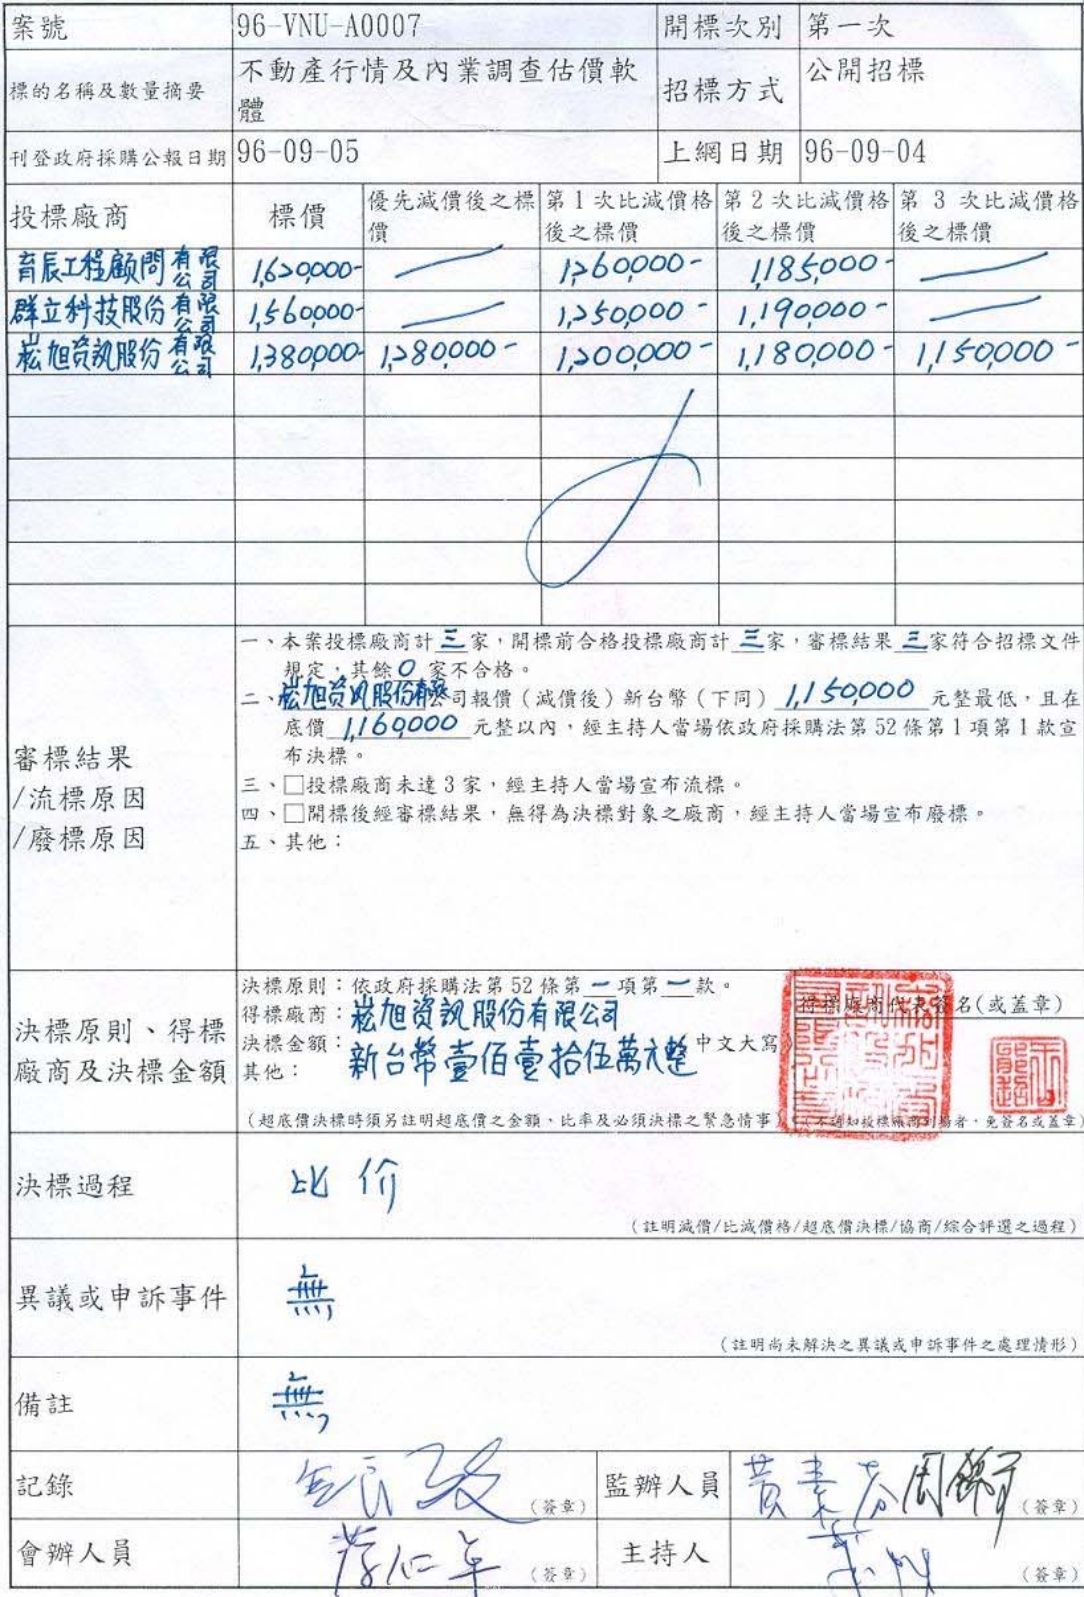 案號 96-VNU-A0007 開標次別 第一次
標的名稱及數量摘要 不動產行情及內業調查估價軟
體 招標方式 公開招標
刊登政府採購公報日期 96-09-05 上網日期 96-09-04
投標廠商 標價 優先減價後之標
價 第1次比減價格
後之標價 第2次比減價格
後之標價 第3次比減價格
後之標價
育辰工程顧問有限公司 1,620,000- — 1,260,000- 1,185,000- —
群立科技股份有限公司 1,560,000- — 1,250,000- 1,190,000- —
崧旭資訊股份有限公司 1,380,000- 1,280,000- 1,200,000- 1,180,000- 1,150,000-
審標結果
/流標原因
/廢標原因
一、本案投標廠商計三家,開標前合格投標廠商計三家,審標結果三家符合招標文件
規定,其餘0家不合格。
二、崧旭資訊股份有限公司報價(減價後)新台幣(下同)1,150,000元整最低,且在
底價1,160,000元整以內,經主持人當場依政府採購法第52條第1項第1款宣
布決標。
三、□投標廠商未達3家,經主持人當場宣布流標。
四、□開標後經審標結果,無得為決標對象之廠商,經主持人當場宣布廢標。
五、其他:
決標原則、得標
廠商及決標金額
決標原則:依政府採購法第52條第一項第一款。
得標廠商:崧旭資訊股份有限公司
得標廠商代表簽名(或蓋章)
決標金額:新台幣壹佰壹拾伍萬元整 中文大寫
其他:
(超底價決標時須另註明超底價之金額、比率及必須決標之緊急情事)
(不通知投標廠商到場者,免簽名或蓋章)
決標過程 比价
(註明減價/比減價格/超底價決標/協商/綜合評選之過程)
異議或申訴事件 無
(註明尚未解決之異議或申訴事件之處理情形)
備註 無
記錄 (簽章) 監辦人員 黃素芬 (簽章)
會辦人員 (簽章) 主持人 (簽章)